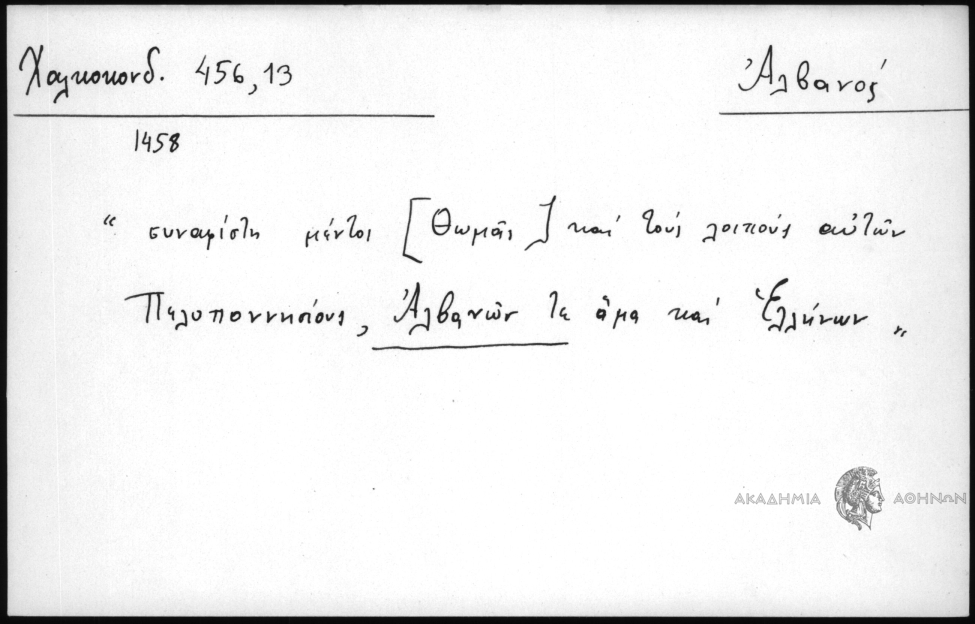 Χαλκοκονδ. 456,13
Ἀλβανός
1458
“ συναφίστη μέντοι [Θωμᾶς] καὶ τούς λοιπούς αὐτῶν
Πελοποννησίους, Ἀλβανῶν τε ἅμα καὶ Ἑλλήνων „
ΑΚΑΔΗΜΙΑ ΑΘΗΝΩΝ